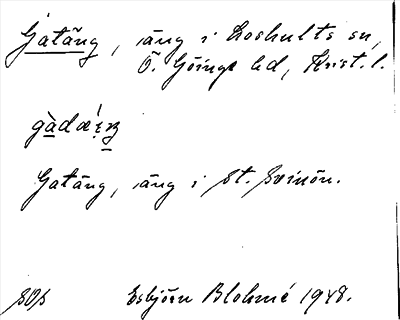 Gatäng, äng i Loshults sn,
Ö. Göinge hd, Krist. l.
Gatäng, äng i St. Svinön.
Esbjörn Blohmé 1948.